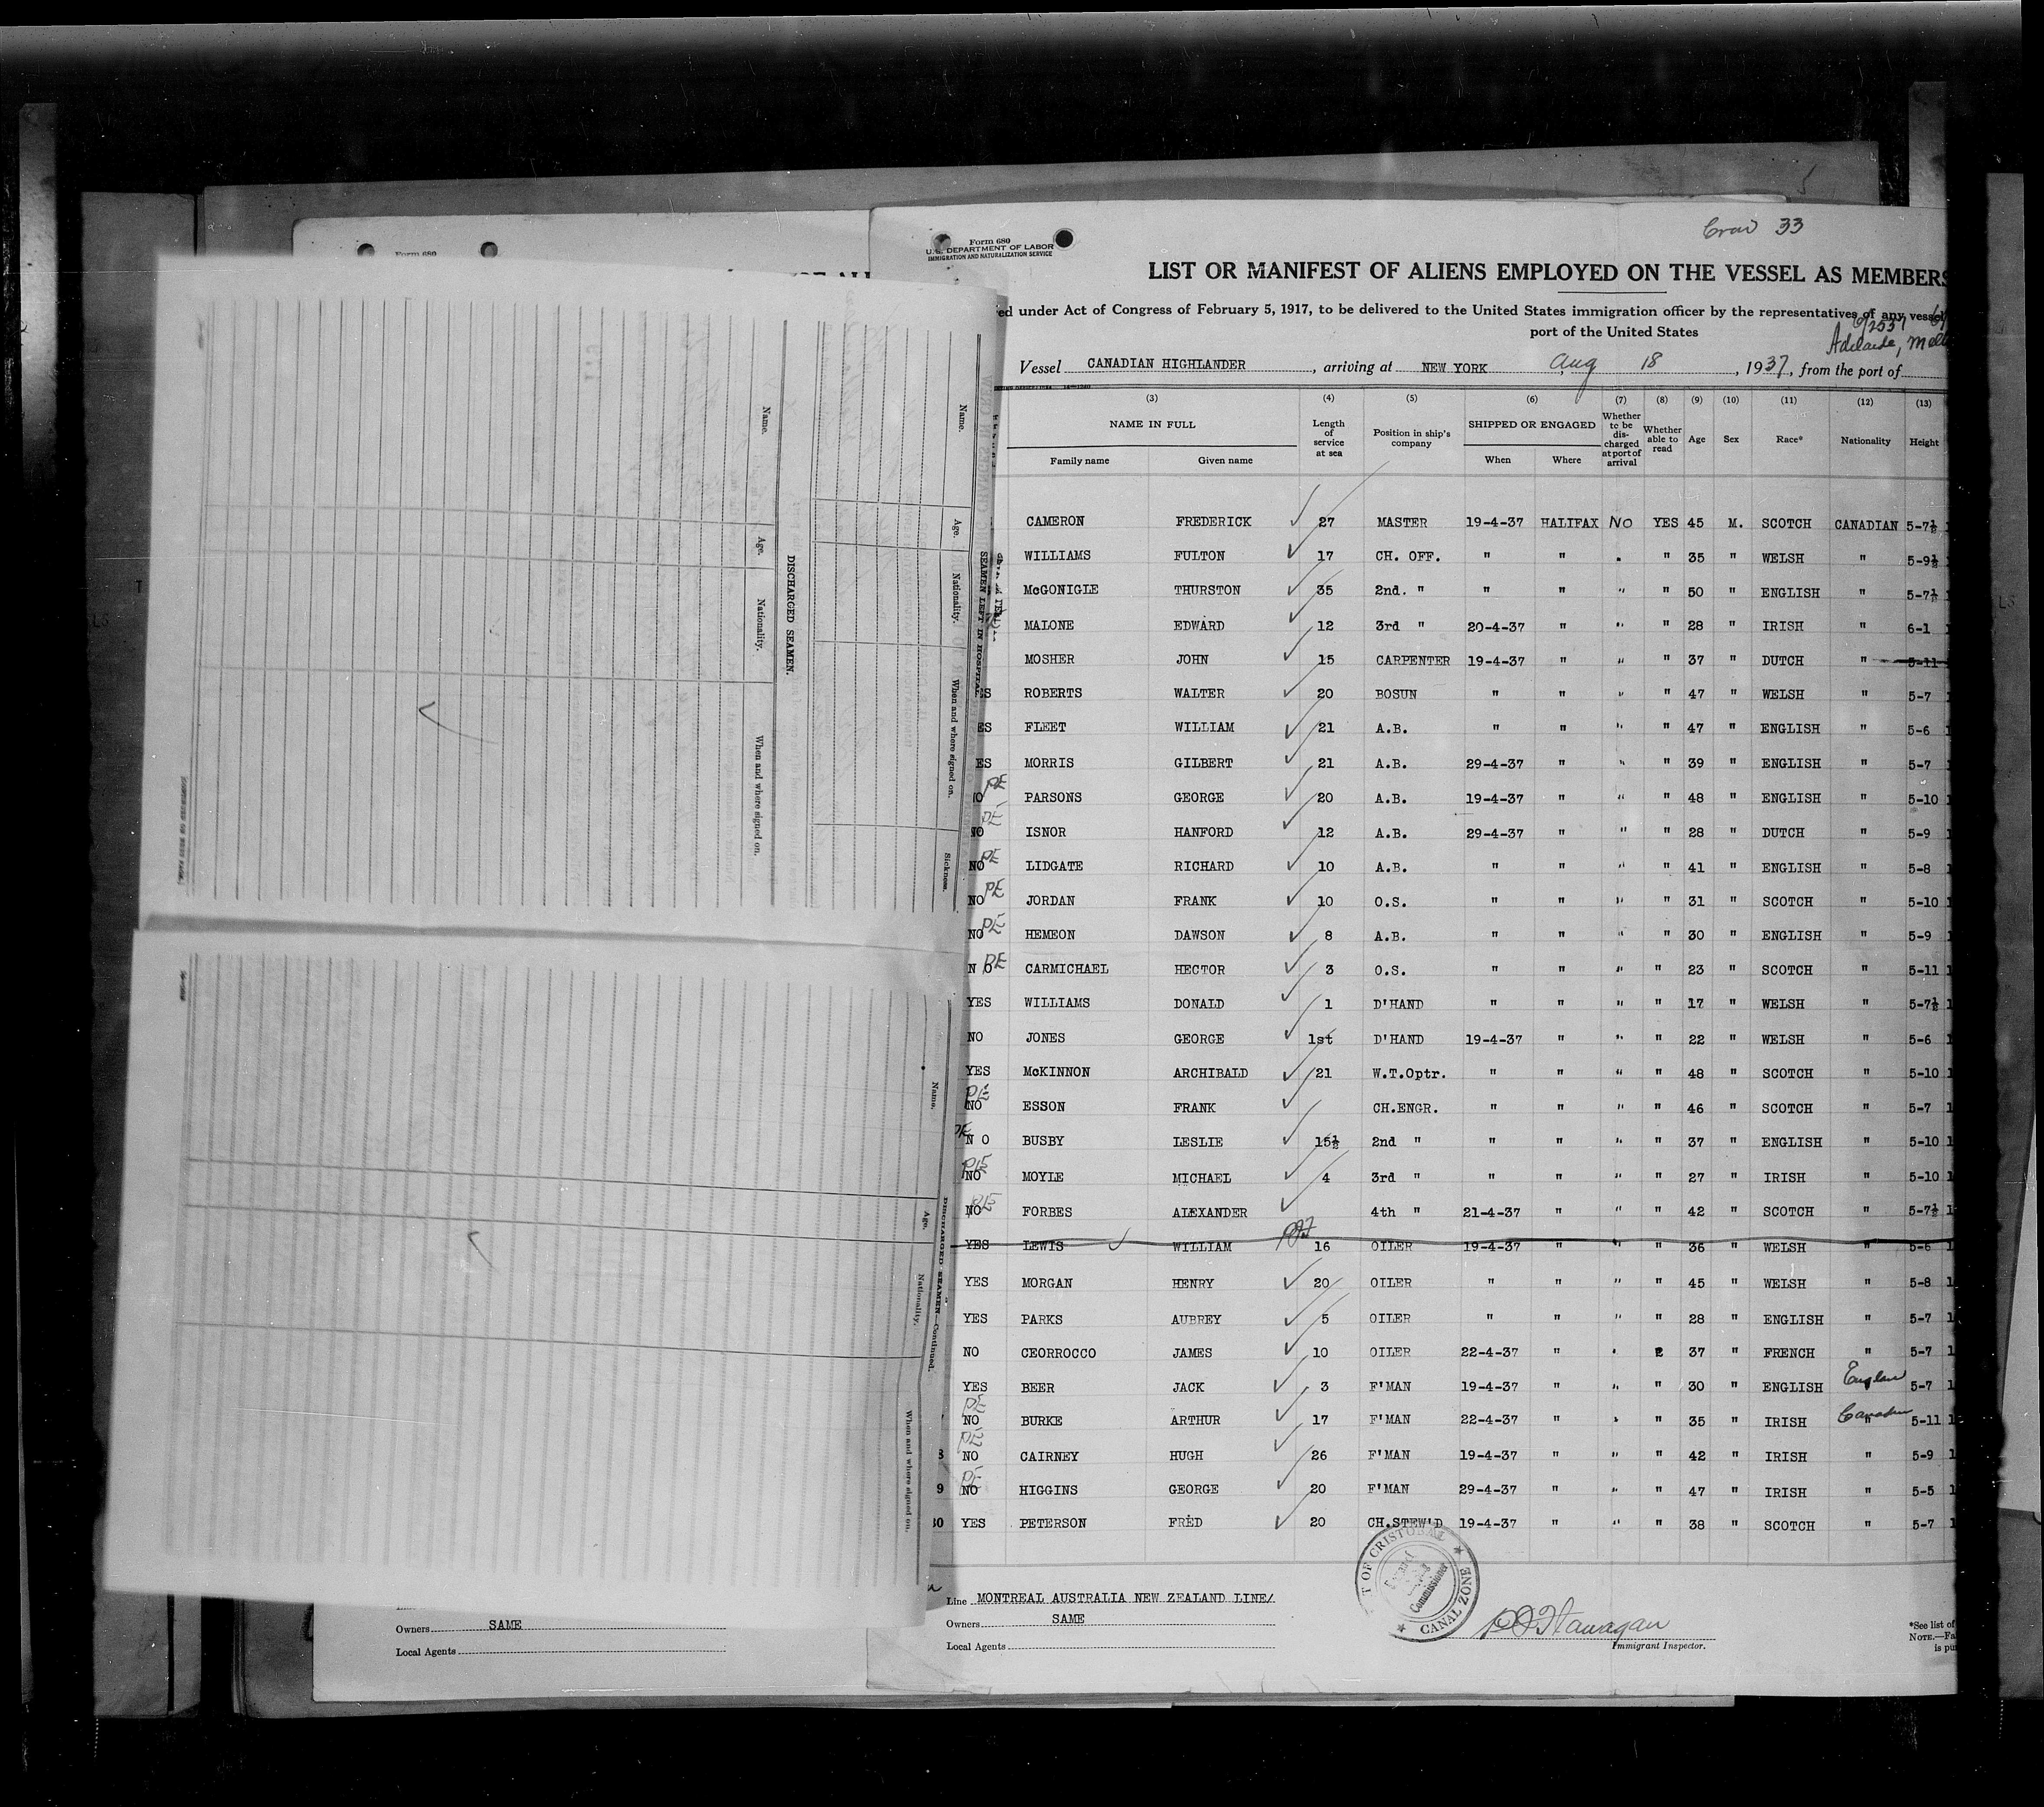 Crew 33
Form 680
U.S. DEPARTMENT OF LABOR
IMMIGRATION AND NATURALIZATION SERVICE
LIST OR MANIFEST OF ALIENS EMPLOYED ON THE VESSEL AS MEMBERS
ed under Act of Congress of February 5, 1917, to be delivered to the United States immigration officer by the representatives of any vessel
port of the United States
Adelaide,
Vessel CANADIAN HIGHLANDER, arriving at NEW YORK Aug 18, 1937, from the port of
(3) (4) (5) (6) (7) (8) (9) (10) (11) (12) (13)
NAME IN FULL Length of service at sea Position in ship's company SHIPPED OR ENGAGED Whether to be discharged at port of arrival Whether able to read Age Sex Race* Nationality Height
Family name Given name When Where
CAMERON FREDERICK 27 MASTER 19-4-37 HALIFAX NO YES 45 M. SCOTCH CANADIAN 5-7½
WILLIAMS FULTON 17 CH. OFF. " " " " 35 " WELSH " 5-9½
McGONIGLE THURSTON 35 2nd. " " " " " 50 " ENGLISH " 5-7½
MALONE EDWARD 12 3rd " 20-4-37 " " " 28 " IRISH " 6-1
MOSHER JOHN 15 CARPENTER 19-4-37 " " " 37 " DUTCH " 5-11
ES ROBERTS WALTER 20 BOSUN " " " " 47 " WELSH " 5-7
ES FLEET WILLIAM 21 A.B. " " " " 47 " ENGLISH " 5-6
ES MORRIS GILBERT 21 A.B. 29-4-37 " " " 39 " ENGLISH " 5-7
NO PE PARSONS GEORGE 20 A.B. 19-4-37 " " " 48 " ENGLISH " 5-10
NO PE ISNOR HANFORD 12 A.B. 29-4-37 " " " 28 " DUTCH " 5-9
NO PE LIDGATE RICHARD 10 A.B. " " " " 41 " ENGLISH " 5-8
NO PE JORDAN FRANK 10 O.S. " " " " 31 " SCOTCH " 5-10
NO PE HEMEON DAWSON 8 A.B. " " " " 30 " ENGLISH " 5-9
N O PE CARMICHAEL HECTOR 3 O.S. " " " " 23 " SCOTCH " 5-11
YES WILLIAMS DONALD 1 D'HAND " " " " 17 " WELSH " 5-7½
NO JONES GEORGE 1st D'HAND 19-4-37 " " " 22 " WELSH " 5-6
YES McKINNON ARCHIBALD 21 W.T.Optr. " " " " 48 " SCOTCH " 5-10
NO PE ESSON FRANK CH.ENGR. " " " " 46 " SCOTCH " 5-7
N O PE BUSBY LESLIE 15½ 2nd " " " " " 37 " ENGLISH " 5-10
NO PE MOYLE MICHAEL 4 3rd " " " " " 27 " IRISH " 5-10
NO PE FORBES ALEXANDER 4th " 21-4-37 " " " 42 " SCOTCH " 5-7½
YES LEWIS WILLIAM 16 OILER 19-4-37 " " " 36 " WELSH " 5-6
YES MORGAN HENRY 20 OILER " " " " 45 " WELSH " 5-8
YES PARKS AUBREY 5 OILER " " " " 28 " ENGLISH " 5-7
NO CEORROCCO JAMES 10 OILER 22-4-37 " " 37 " FRENCH " 5-7
YES BEER JACK 3 F'MAN 19-4-37 " " " 30 " ENGLISH " 5-7
NO PE BURKE ARTHUR 17 F'MAN 22-4-37 " " " 35 " IRISH Canadian 5-11
8 NO PE CAIRNEY HUGH 26 F'MAN 19-4-37 " " " 42 " IRISH " 5-9
9 NO PE HIGGINS GEORGE 20 F'MAN 29-4-37 " " " 47 " IRISH " 5-5
30 YES PETERSON FRED 20 CH.STEWD 19-4-37 " " " 38 " SCOTCH " 5-7
Line MONTREAL AUSTRALIA NEW ZEALAND LINE/
Owners SAME
Local Agents
T OF CRISTOBAL
Commissioner
CANAL ZONE
Immigrant Inspector.
*See list of
NOTE.—Fa
is pu
Form 680
Owners SAME
Local Agents
SEAMEN LEFT IN HOSPITAL
Name. Age. Nationality. When and where signed on. Sickness.
DISCHARGED SEAMEN.
Name. Age. Nationality. When and where signed on.
DISCHARGED SEAMEN—Continued.
Name. Age. Nationality. When and where signed on.